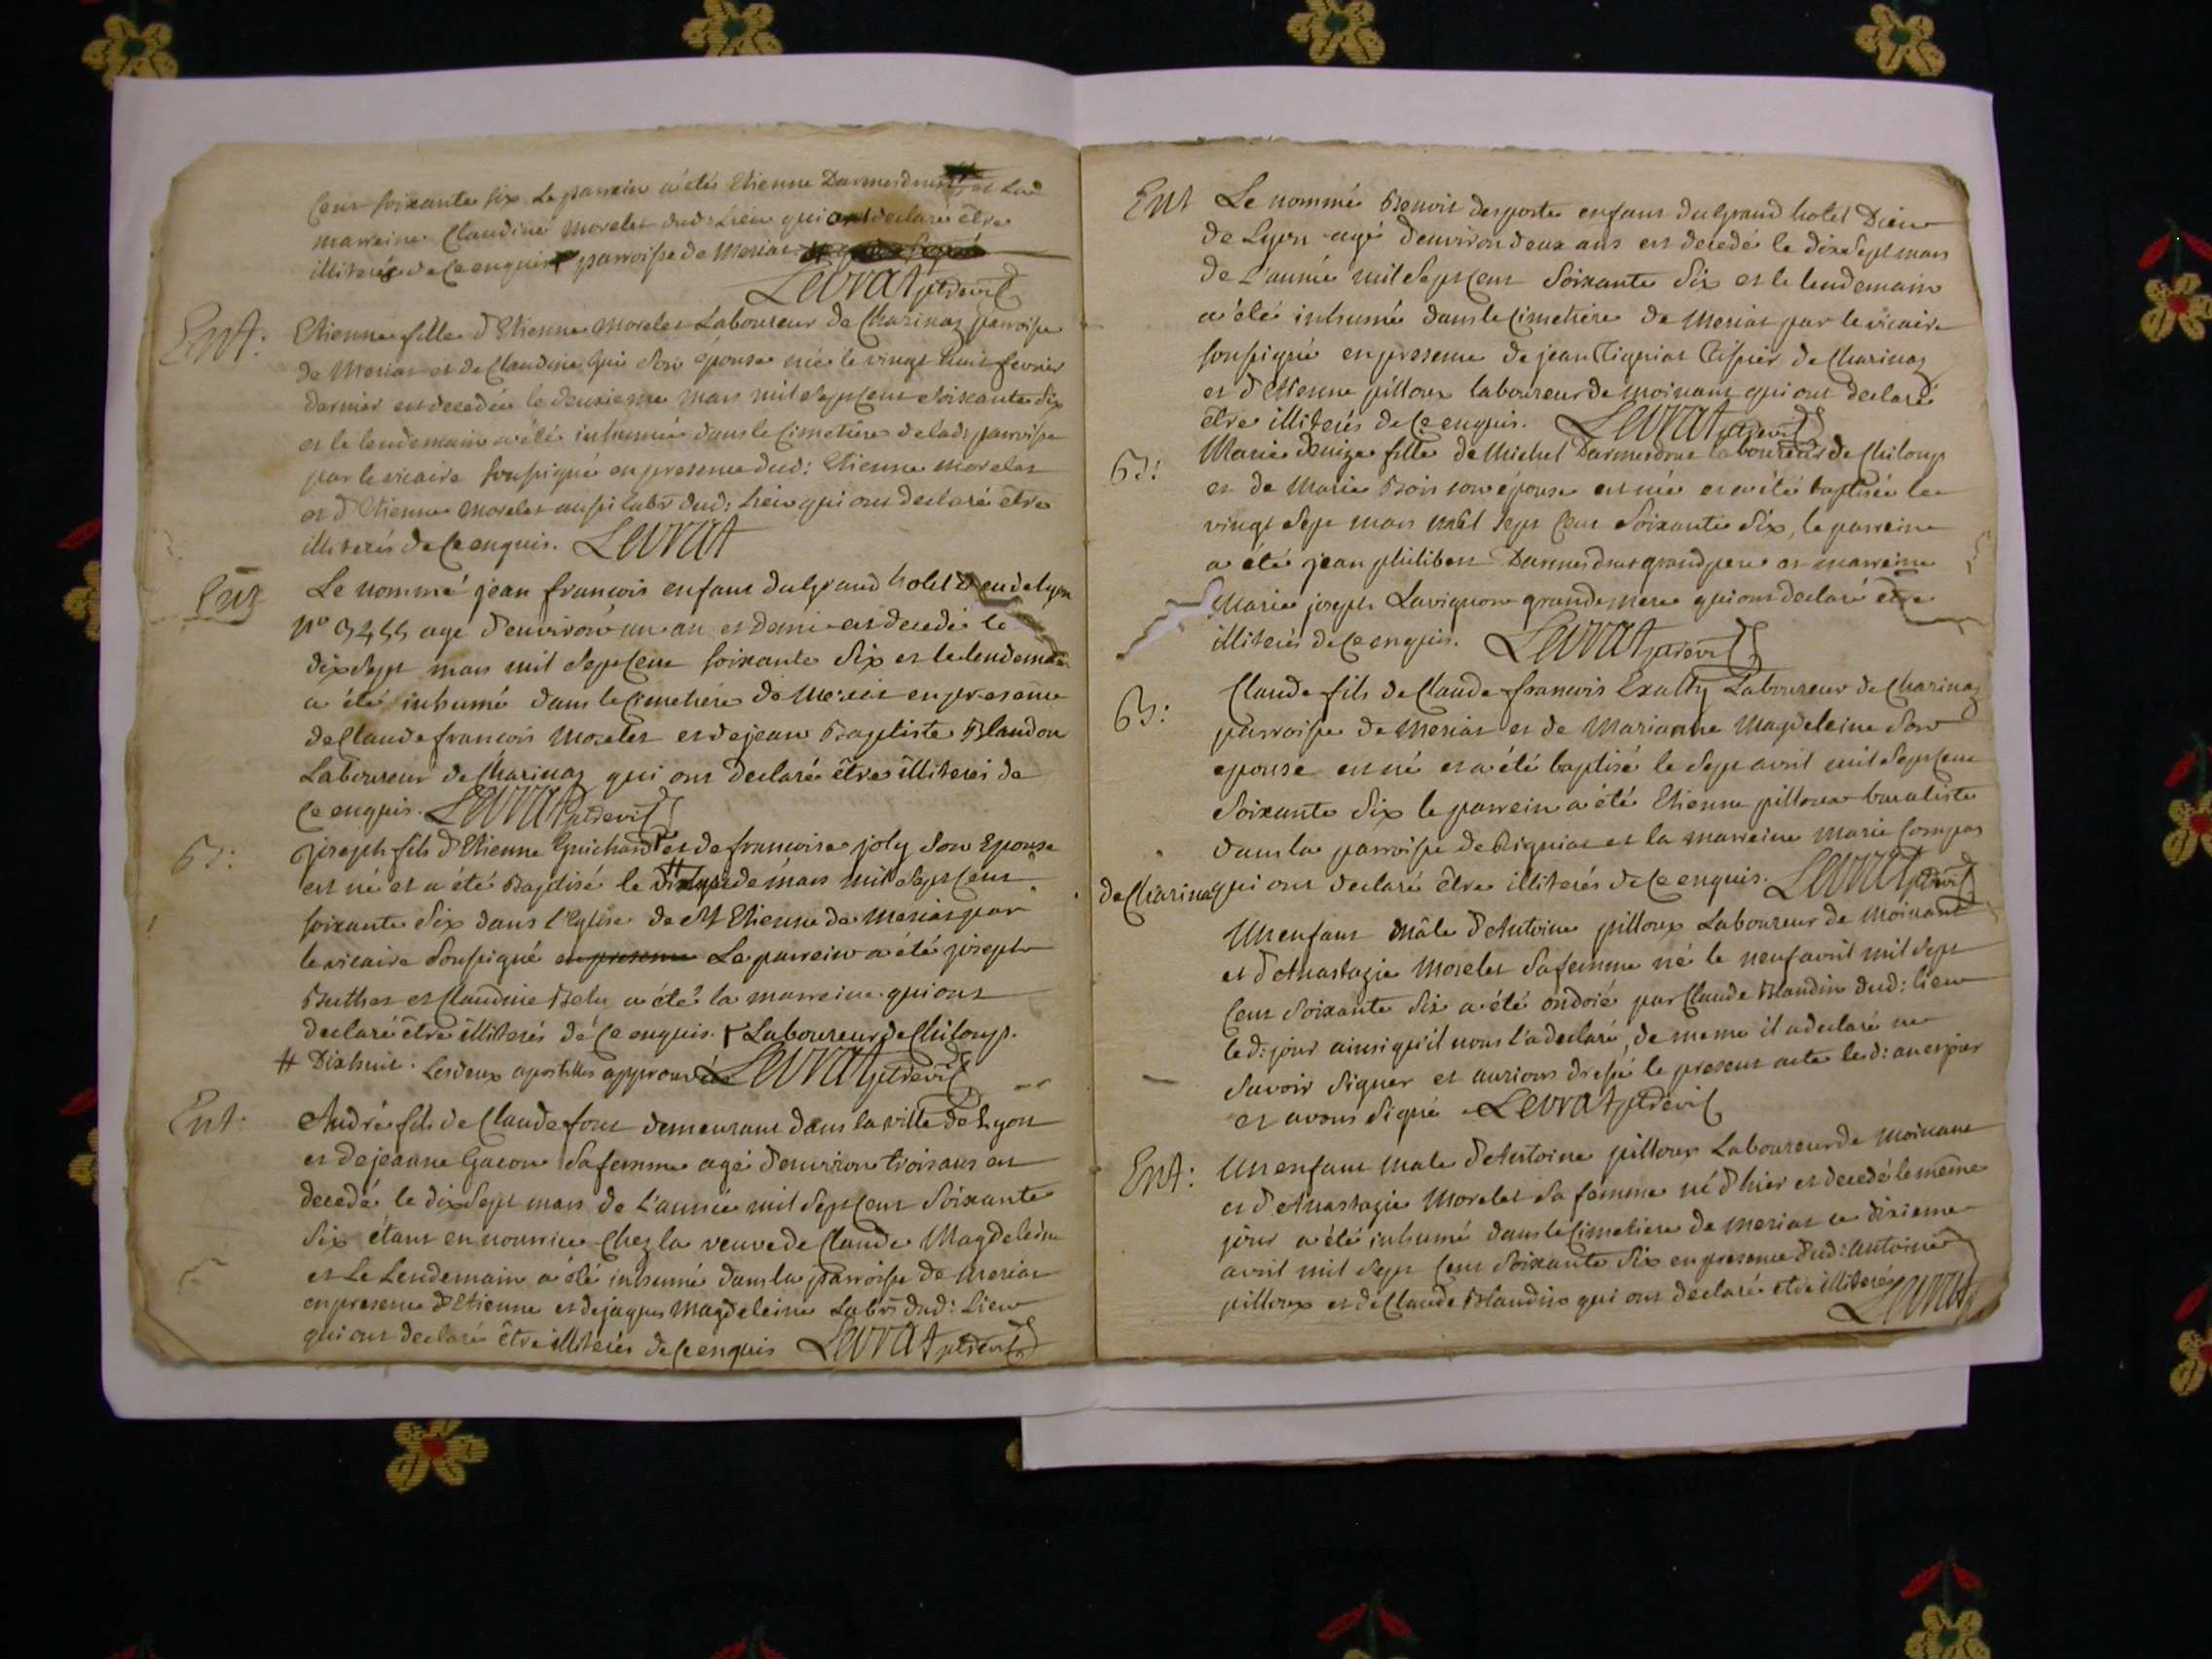 Cent soixante six le parrein a été Etienne Darmedru et la
marreine Claudine morelet dud: Lieu qui ont declaré être
illiterés de ce enquis parroisse de Meziat
Levrat ptrevic
Ent: Etienne fille d'Etienne morelet Laboureur de Charinaz parroisse
de Meziat et de Claudine son épouse née le vingt huit fevrier
dernier est decedée le deuxiesme mars mil sept cent soixante six
et le lendemain a été inhumée dans le Cimetiere de lad: parroisse
par le vicaire soussigné en presence dud: Etienne morelet
et d'Etienne morelet aussi labr dud: Lieu qui ont declaré être
illiterés de ce enquis. Levrat
Ent Le nommé jean francois enfant du grand hotel Dieu de Lyon
no agé d'environ un an et demi est decedé le
dix sept mars mil sept cent soixante six et le lendemain
a été inhumé dans le cimetiere de Meziat en presence
de Claude francois Morelet et de jean Baptiste Blandon
Laboureur de Charinaz qui ont declaré être illiterés de
ce enquis. Levrat ptrevic
B: joseph fils d'Etienne Guichard et de francoise joly son Epouse
est né et a été Baptisé le # de mars mil sept cent
soixante six dans l'Eglise de St Etienne de Meziat par
le vicaire soussigné en presence Le parrein a été joseph
Buthet et Claudine Belu a été la marreine qui ont
declaré être illiterés de ce enquis. † Laboureur de Chiloup.
# Dixhuit. Les deux apostilles approuvées Levrat ptrevic
Ent: André fils de Claude font demeurant dans la ville de Lyon
et de jeanne Gacon sa femme agé d'environ trois ans est
decedé le dix sept mars de l'année mil sept cent soixante
six étant en nourrice chez la veuve de Claude Magdeleine
et Le Lendemain a été inhumé dans la parroisse de Meziat
en presence d'Etienne et de jaques Magdeleine Labrs dud: Lieu
qui ont declaré être illiterés de ce enquis Levrat ptrevic
Ent Le nommé Benoit desporte enfant du grand hotel Dieu
de Lyon agé d'environ deux ans est decedé le dix sept mars
de L'année mil sept cent soixante six et le lendemain
a été inhumé dans le Cimetiere de Meziat par le vicaire
soussigné en pressence de jean Tissier de Charinaz
et d'Etienne pilloux laboureur de moinans qui ont declaré
être illiterés de ce enquis. Levrat ptrevic
B: Marie Denize fille de Michel Darmedrut laboureur de Chiloup
et de Marie Bois son épouse est née et a été baptisée le
vingt sept mars mil sept cent soixante six, le parrein
a été jean philibert Darmedrut grand pere et marreine
Marie joseph Lavignon grande mere qui ont declaré être
illiterés de ce enquis. Levrat ptrevic
B: Claude fils de Claude francois Exalty Laboureur de Charinaz
parroisse de Meziat et de Marianne Magdeleine son
epouse est né et a été baptisé le sept avril mil sept cent
soixante six le parrein a été Etienne pilloux buraliste
dans la parroisse de Rigniat et la marreine Marie Compas
de Charinaz qui ont declaré être illiterés de ce enquis. Levrat ptrevic
Un enfant mâle d'Antoine pilloux Laboureur de Moinans
et d'Anastazie Morelet sa femme né le neuf avril mil sept
cent soixante six a été ondoié par Claude Blandin dud: lieu
led: jour ainsi qu'il nous l'a declaré, de meme il a declaré ne
savoir signer et aurions dressé le present acte lesd: an et jour
et avons signé Levrat ptrevic
Ent: Un enfant male d'Antoine pilloux Laboureur de moinans
et d'Anastazie Morelet sa femme né d'hier et decedé le même
jour a été inhumé dans le Cimetiere de meziat ce dixieme
avril mil sept cent soixante six en presence dud: Antoine
pilloux et de Claude Blandin qui ont declaré être illiterés
Levrat